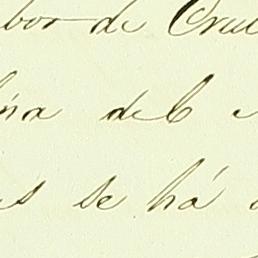 bor de Cruc
ina del
s se há